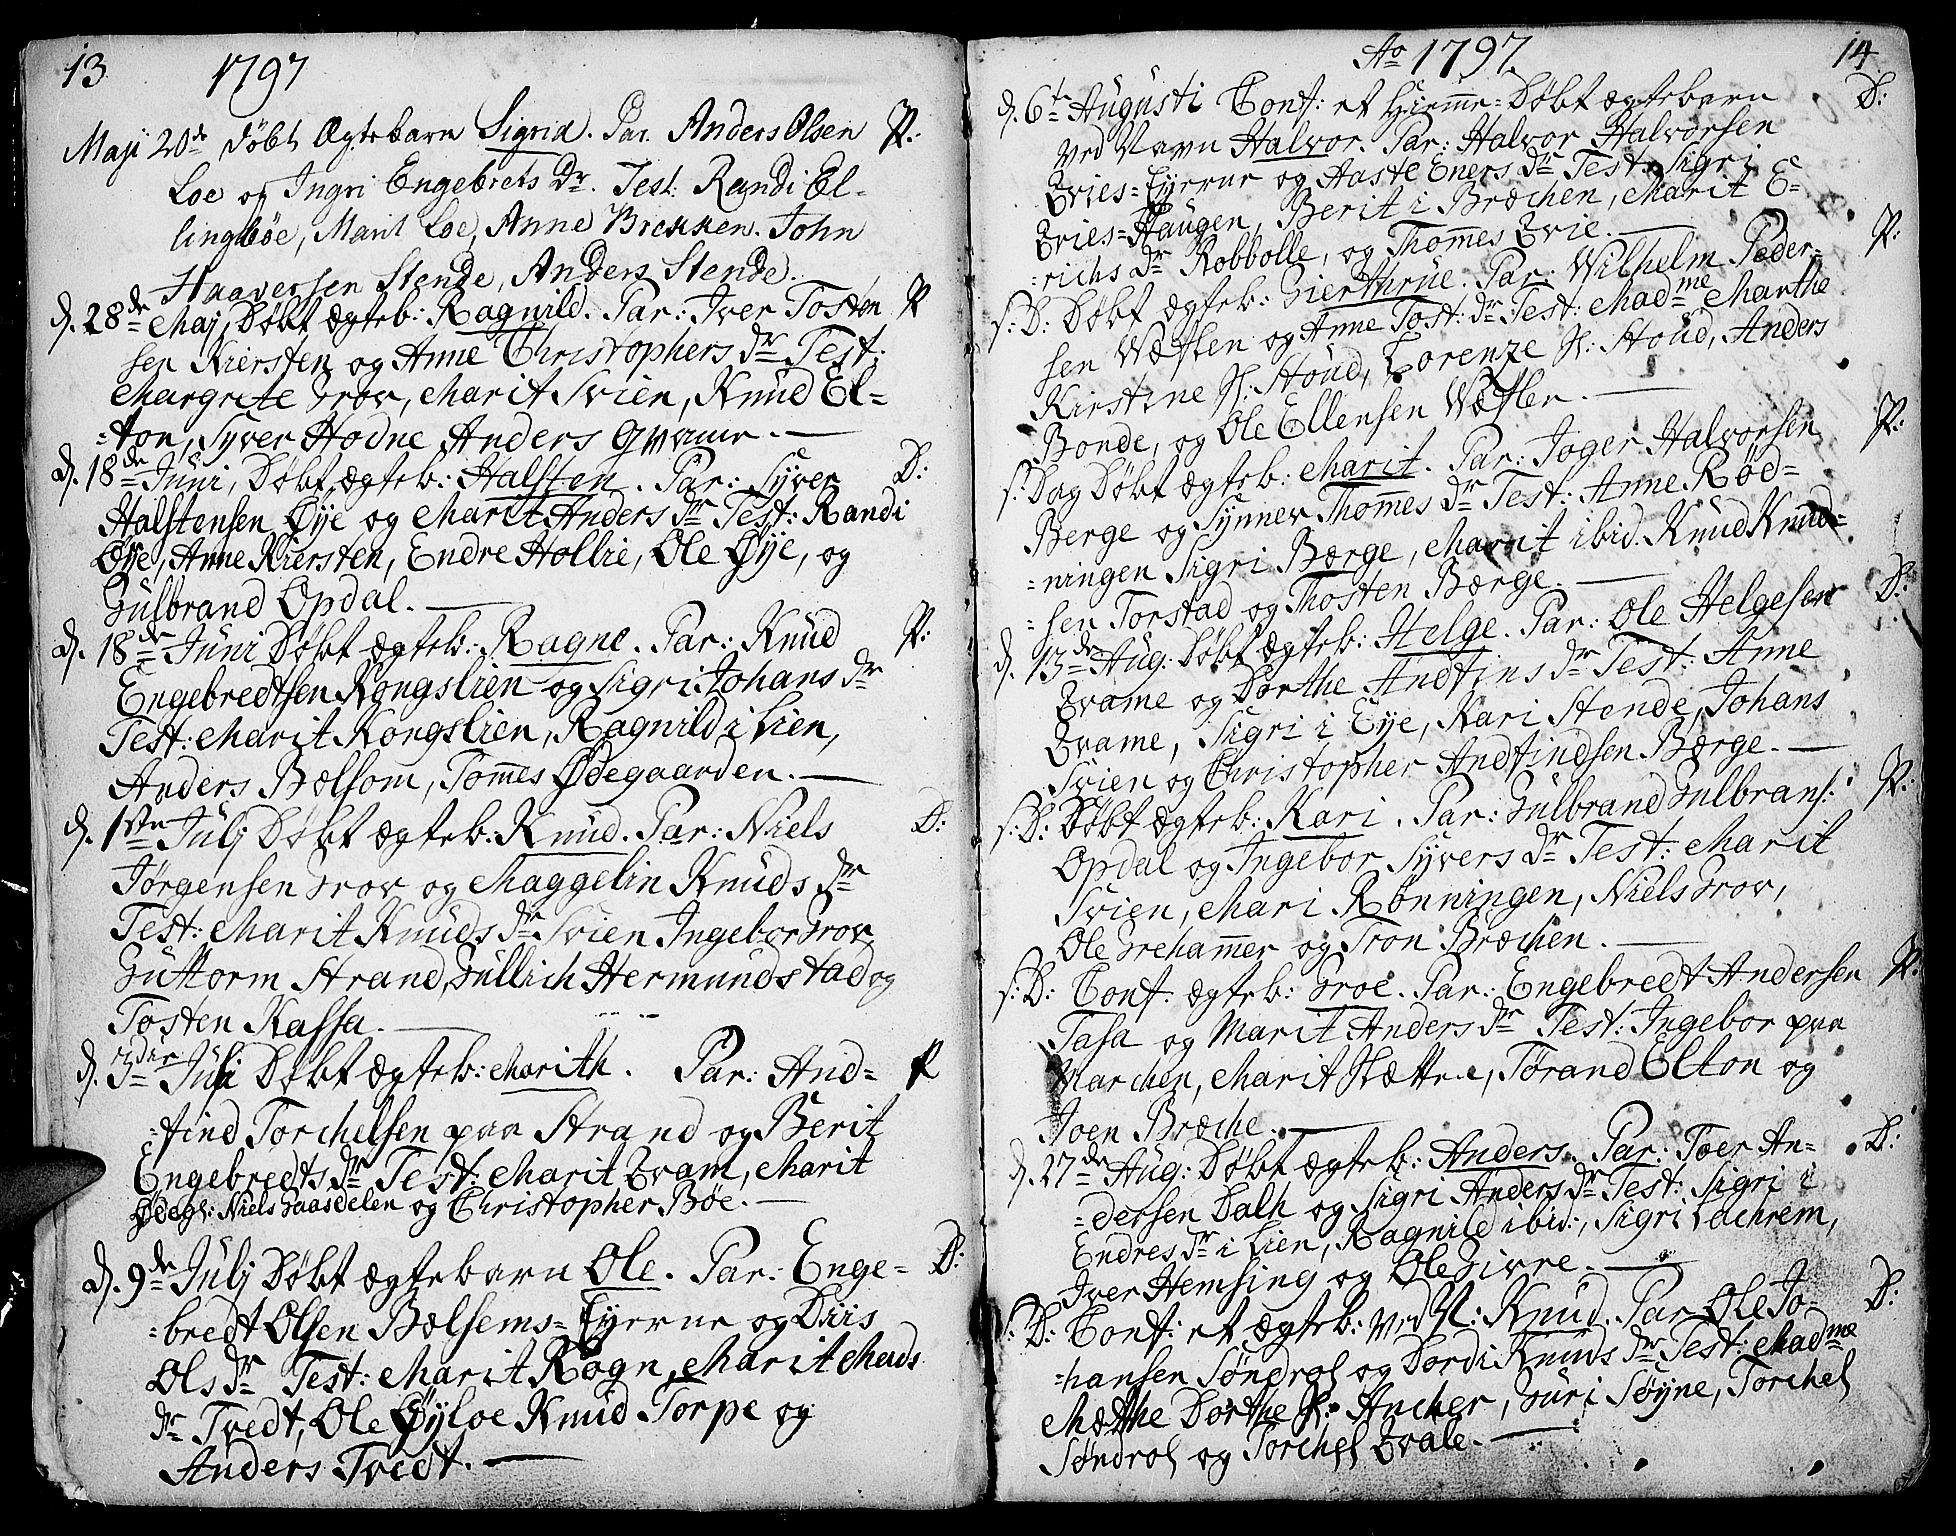 13 1797
Maji 20de Døbt Ægtebarn Sigrid. Par. Anders Olsen P:
Loe og Ingri Engebrets Dr. Test: Randi El-
lingbøe, Marit Loe, Anne Brekken. John
Haaversen Stende, Anders Stende.
d. 28de Maj, Døbt ægteb: Ragnild. Par: Iver Tosten P
sen Kiersten og Anne Christophers Dr Test:
Margrete Grov, Marit Svien, Knud El=
=ton, Syver Hodne Anders Qvame.
d. 18de Juni, Døbt ægteb: Halsten. Par: Syver D:
Halstensen Øÿe og Marit Anders Dr Test: Randi
Øÿe, Anne Kiersten, Endre Hollie, Ole Øÿe, og
Gulbrand Opdal.
d. 18de Juni Døbt ægteb: Ragne. Par: Knud P:
Engebredtsen Kongslien og Sigri Johans Dr
Test: Marit Kongslien, Ragnild i Lien,
Anders Bælsom, Tom̄es Ødegaarden.
d. 1ste Julj Døbt ægteb. Knud. Par: Niels D:
Jørgensen Grov og Maggelin Knuds Dr
Test: Marit Knuds Dr Svien Ingebor Grov,
Guttorm Strand, Gullich Hermundstad og
Tosten Kassa.
d. 3die Juli Døbt ægteb: Marith. Par: And= P
=find Torchelsen paa Strand og Berit
Engebredts Dr Test: Marit Qvam, Marit
Ødeg: Niels Gaasdelen og Christopher Bøe.
d. 9de Julj Døbt ægtebarn Ole. Par: Enge= D:
=bredt Olsen Bælsems=Eyerne og Diis
Ols Dr Test: Marit Rogn, Marit Mads
Dr Tvedt, Ole Øÿloe Knud Torpe og
Anders Tvedt.
Ao 1797 14
d. 6te Augusti Conf: et Hiem̄e=Døbt ægtebarn D:
ved Navn Halvor. Par: Halvor Halvorsen
Qvies=Eyerne og Aaste Eners Dr Test: Sigri
Qvies=Haugen, Berit i Bræchen, Marit E=
=richs Dr Robbolle, og Thom̄es Qvie.
s: D: Døbt ægteb: Gierthrue. Par: Wilhelm Peder= P:
sen Wæflen og Anne Tost: Dr Test: Madme Marthe
Kirstine Sl: Stoud, Lorenze Sl: Stoud, Anders
Bonde, og Ole Ellensen Wæflen.
s: Dag Døbt ægteb: Marit. Par: Joger Halvorsen P:
Berge og Synnev Thom̄es Dr Test: Anne Rød=
=ningen Sigri Bærge, Marit ibid. Knud Knud=
=sen Torstad og Thosten Bærge.
d. 13de Aug: Døbt ægteb: Helge. Par: Ole Helgesen D:
Qvame og Dorthe Andfins Dr Test: Anne
Qvame, Sigri i Eye, Kari Stende, Johans
Svien og Christopher Andfindsen Bærge.
s: D: Døbt ægteb: Kari. Par: Gulbrand Gulbrans: P:
Opdal og Ingebor Syvers Dr Test: Marit
Svien, Mari Rønningen, Niels Grov,
Ole Greham̄er og Tron Bræchen.
s: D: Conf: ægteb: Groe. Par: Engebredt Andersen P:
Tasa og Marit Anders Dr Test: Ingebor paa
Marchen, Marit Tørand Elton og
Joen Bræche.
d. 27de Aug: Døbt ægteb: Anders. Par: Toer An- D:
=dersen Dalh og Sigri Anders Dr Test: Sigri
Endres Dr i Lien, Ragnild ibid:, Sigri Lachrem,
Iver Hemsing og Ole Givre.
s: D: Conf: et ægteb: ved N: Knud. Par Ole Jo- D:
=hansen Søndrol og Dordi Knuds Dr Test: Madme
Mætthe Dorthe Sl: Ancher, Guri Søyne, Torchel
Søndrol og Torchel Qvale.